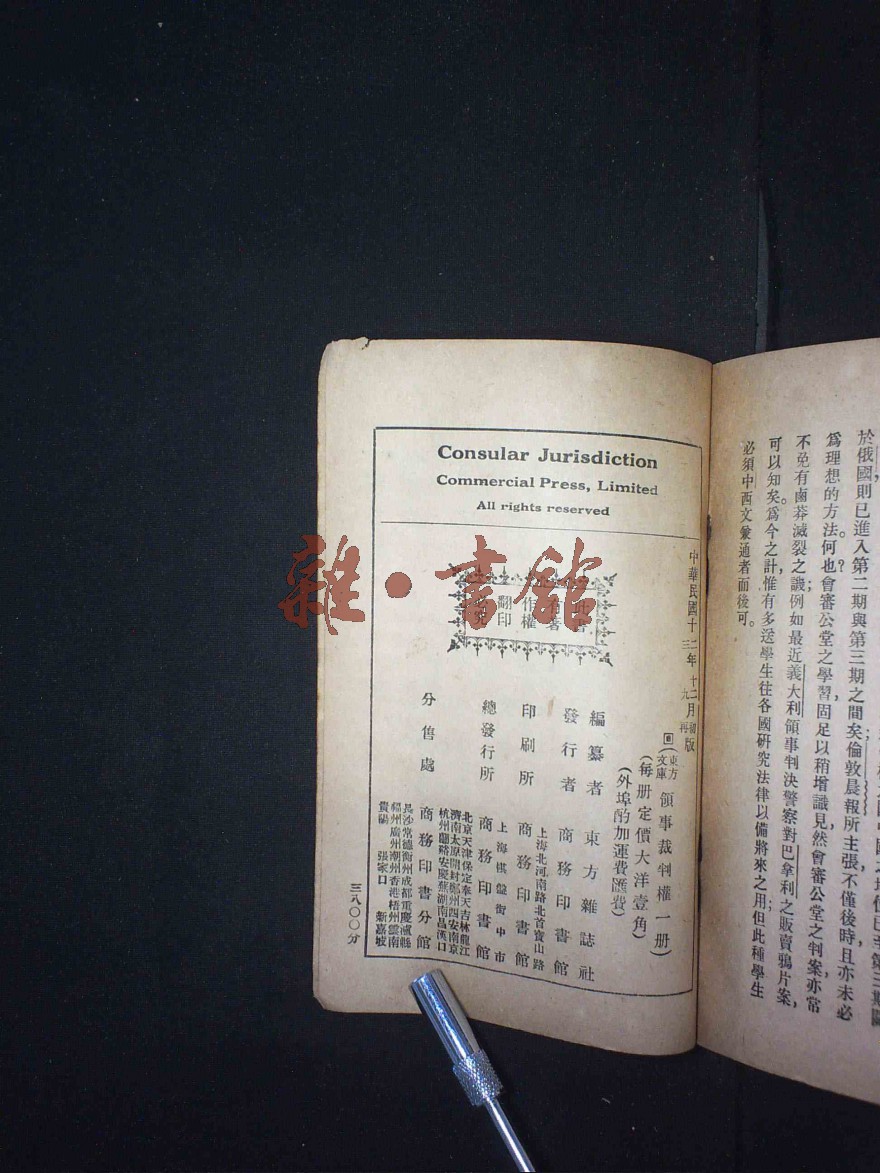 於俄國則已進入第二期與第三期之間矣倫敦晨報所主張不僅後時且亦未必
爲理想的方法。何也?會審公堂之學習,固足以稍增識見,然會審公堂之判案亦常
不免有鹵莽滅裂之譏;例如最近義大利領事判決警察對巴拿利之販賣鴉片案,
可以知矣。爲今之計,惟有多送學生往各國研究法律以備將來之用但此種學生
必須中西文彙通者而後可。
Consular Jurisdiction
Commercial Press, Limited
All rights reserved
中華民國十二年十二月初版
三年九月再版
此書
有著
作權
翻印
必究
東方文庫 領事裁判權一册
(每册定價大洋壹角)
(外埠酌加運費匯費)
編纂者 東方雜誌社
發行者 商務印書館
印刷所 上海北河南路北首寶山路 商務印書館
總發行所 上海棋盤街中市 商務印書館
分售處 商務印書分館
北京天津保定奉天吉林龍江
濟南太原開封鄭州西安南京
杭州蘭谿安慶蕪湖南昌漢口
長沙常德衡州成都重慶瀘縣
福州廣州潮州香港梧州雲南
貴陽 張家口 新嘉坡
三八〇〇分
雜·書館